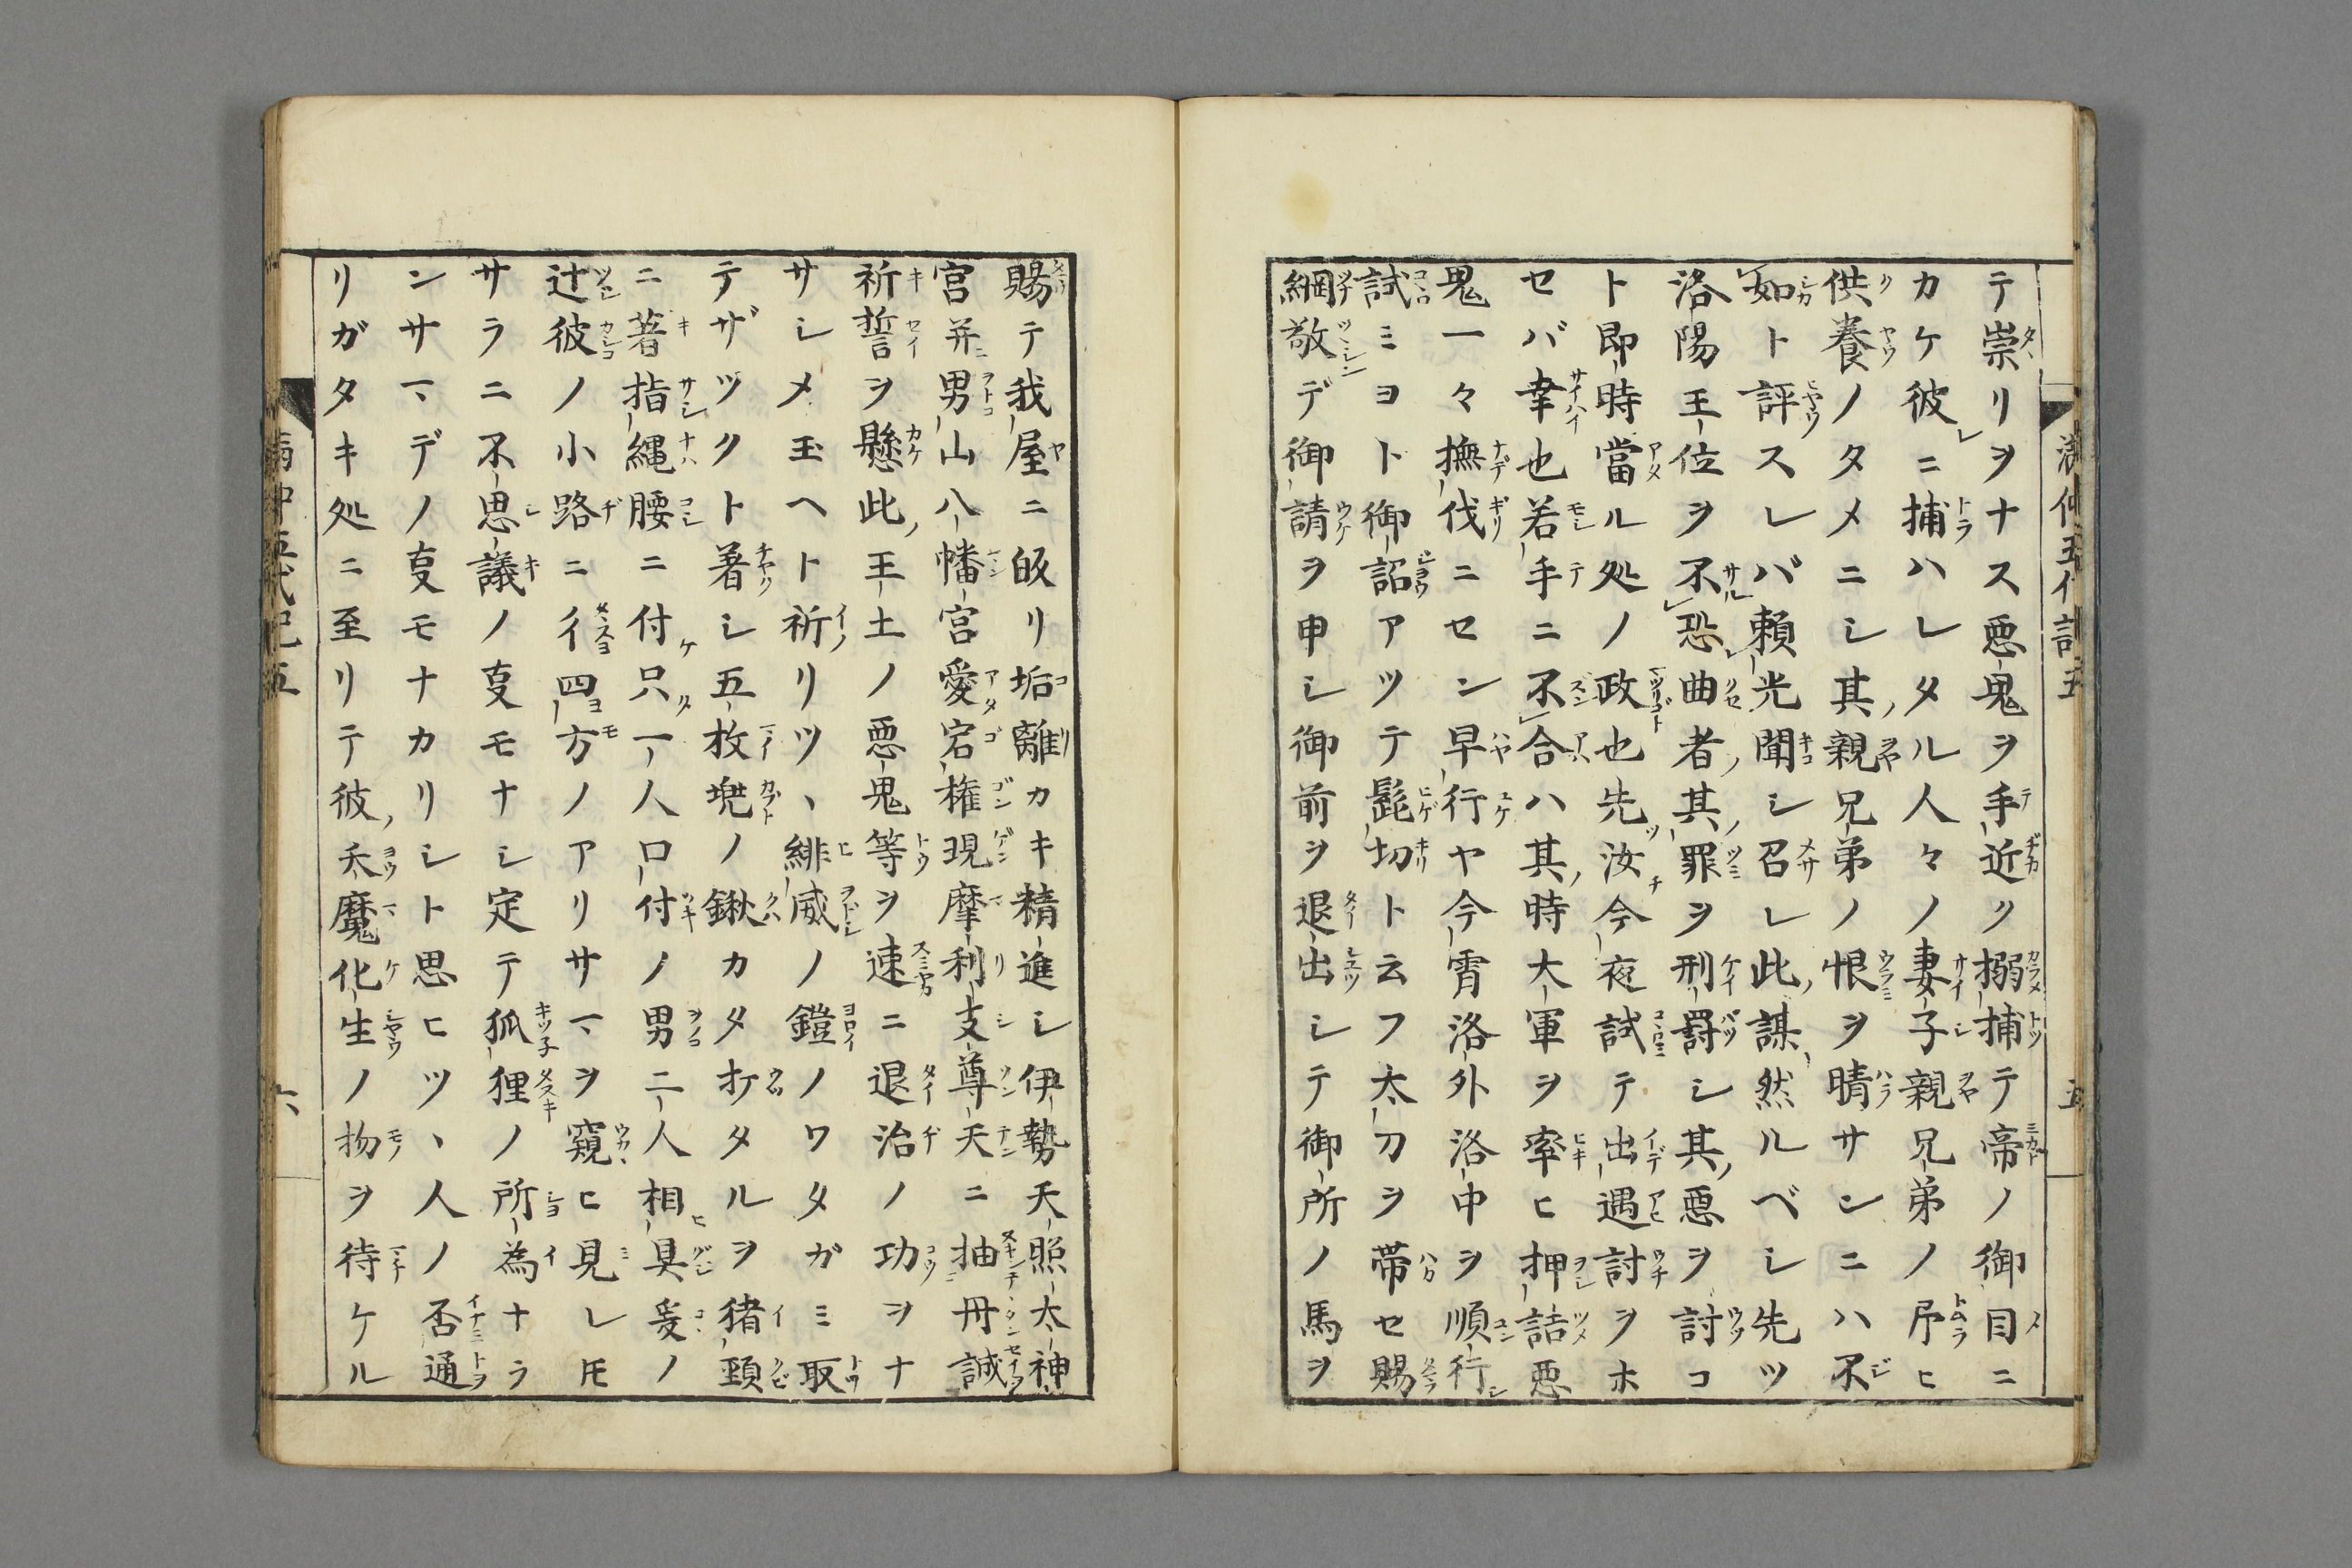 満仲五代記五
五
テ崇リヲナス悪鬼ヲ手近ク搦捕テ帝ノ御目ニ
カケ彼ニ捕ハレタル人々ノ妻子親兄弟ノ吊ヒ
供養ノタメニシ其親兄弟ノ恨ヲ晴サンニハ不
如ト評スレバ頼光聞シ召レ此謀然ルベシ先ツ
洛陽王位ヲ不恐曲者其罪ヲ刑罸シ其悪ヲ討コ
ト即時當ル処ノ政也先汝今夜試テ出遇討ヲホ
セバ幸也若手ニ不合ハ其時大軍ヲ率ヒ押詰悪
鬼一々撫伐ニセン早行ヤ今宵洛外洛中ヲ順行シ
試ミヨト御詔アツテ髭切ト云フ太刀ヲ帯セ賜
綱敬デ御請ヲ申シ御前ヲ退出シテ御所ノ馬ヲ
賜テ我屋ニ皈リ垢離カキ精進シ伊勢天照太神
宮并男山八幡宮愛宕権現摩利支尊天ニ抽丹誠
祈誓ヲ懸此王土ノ悪鬼等ヲ速ニ退治ノ功ヲナ
サシメ玉ヘト祈リツヽ緋威ノ鎧ノワタガミ取
テザツクト著シ五枚兜ノ鍬カタ打タルヲ猪頸
ニ著指縄腰ニ付只一人口付ノ男二人相具爰ノ
辻彼ノ小路ニ彳四方ノアリサマヲ窺ヒ見レ𪜈
サラニ不思議ノ㕝モナシ定テ狐狸ノ所為ナラ
ンサマデノ㕝モナカリシト思ヒツヽ人ノ否通
リガタキ処ニ至リテ彼夭魔化生ノ物ヲ待ケル
満仲五代記五
六